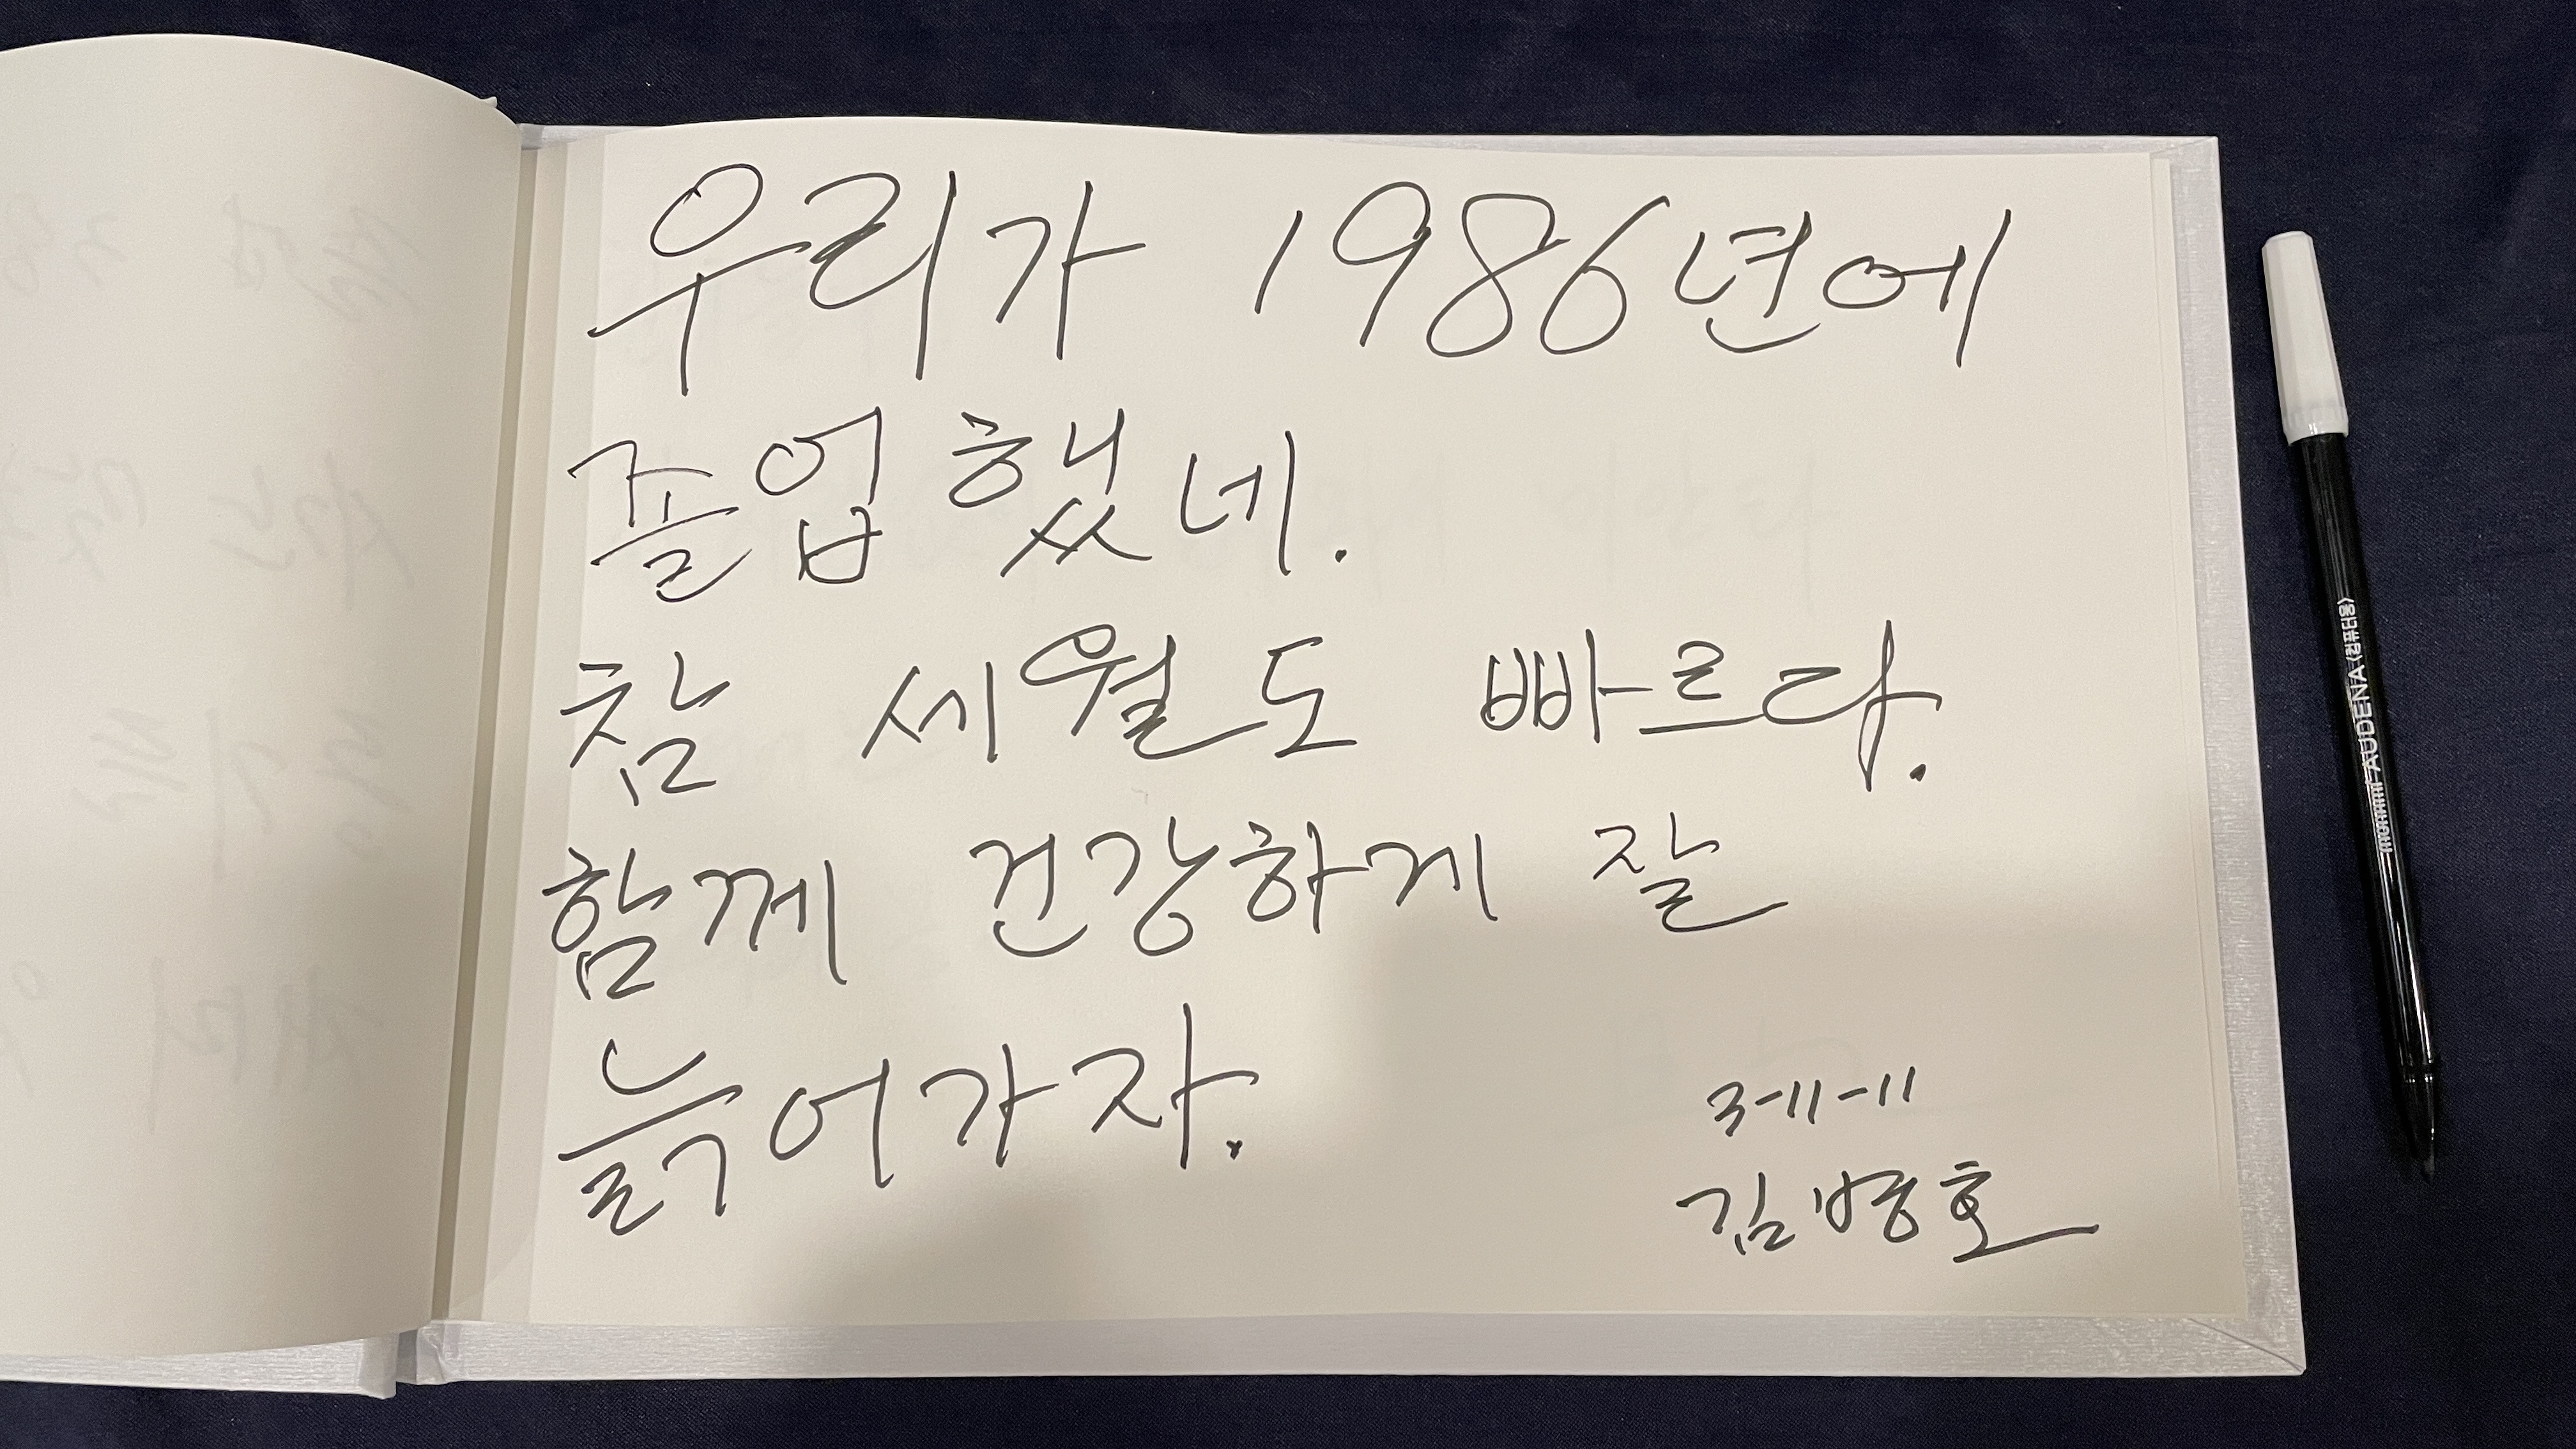 우리가 1986년에
졸업했네.
참 세월도 빠르다.
함께 건강하게 잘
늙어가자.
3-11-11
김병호
monami AUDENA <컴퓨터용>